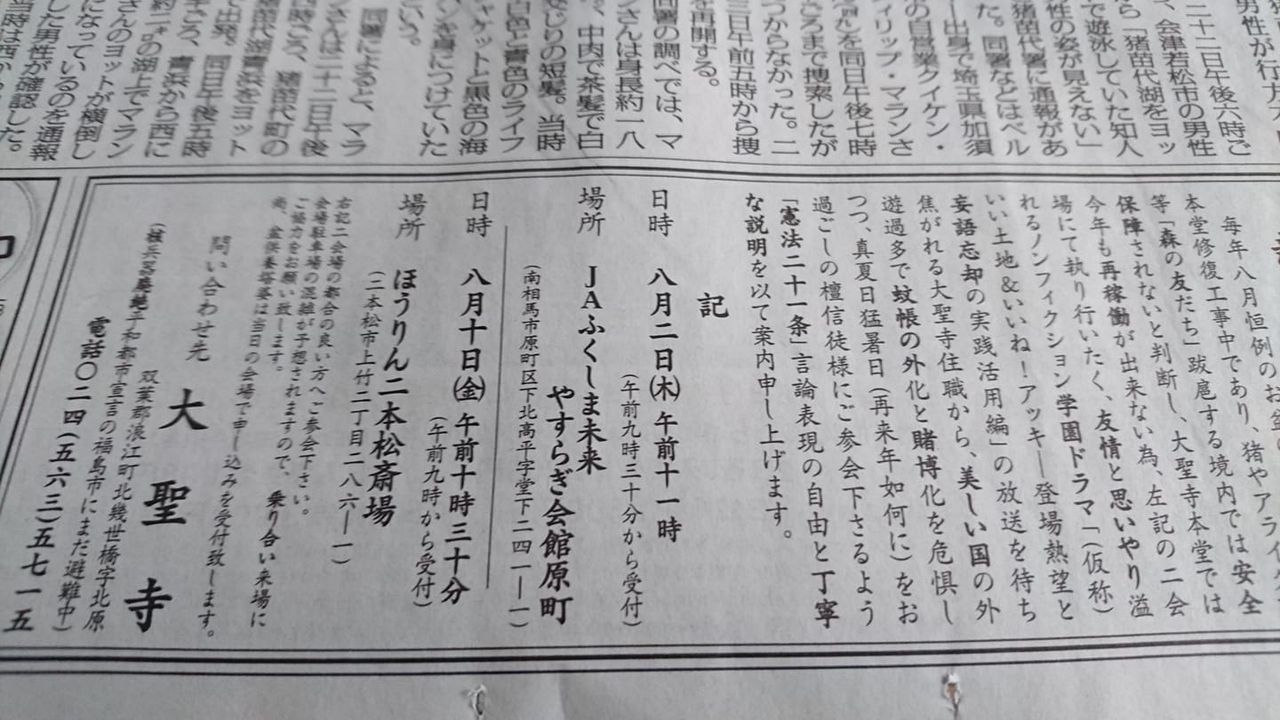 男性が行方
二十二日午後六時ご
、会津若松市の男性
ら「猪苗代湖をヨッ
で遊泳していた知人
性の姿が見えない」
猪苗代署に通報があ
た。同署などはベル
出身で埼玉県加須
の自営業クイケン・
ィリップ・マランさ
を同日午後七時
ごろまで捜索したが
つからなかった。二
三日午前五時から捜
を再開する。
同署の調べでは、マ
ンさんは身長約一八
、中肉で茶髪で白
じりの短髪。当時
白色と青色のライフ
ャケットと黒色の海
ンを身につけていた
という。
同署によると、マラ
さんは二十二日午後
時ごろ、猪苗代町の
猪苗代湖青浜をヨット
で出発。同日午後五時
ごろ、青浜から西に
約二㌔の湖上でマラン
さんのヨットが横倒し
になっているのを通報
した男性が確認した。
当時は西か
毎年八月恒例のお盆
本堂修復工事中であり、猪やアライグ
等「森の友だち」跋扈する境内では安全
保障されないと判断し、大聖寺本堂では
今年も再稼働が出来ない為、左記の二会
場にて執り行いたく、友情と思いやり溢
れるノンフィクション学園ドラマ「(仮称)
いい土地&いいね!アッキー登場熱望と
妄語忘却の実践活用編」の放送を待ち
焦がれる大聖寺住職から、美しい国の外
遊過多で蚊帳の外化と賭博化を危惧し
つつ、真夏日猛暑日(再来年如何に)をお
過ごしの檀信徒様にご参会下さるよう
「憲法二十一条」言論表現の自由と丁寧
な説明を以て案内申し上げます。
記
日時 八月二日㈭午前十一時
(午前九時三十分から受付)
場所 JAふくしま未来
やすらぎ会館原町
(南相馬市原町区下北高平字堂下二四一―一)
日時 八月十日㈮午前十時三十分
(午前九時から受付)
場所 ほうりん二本松斎場
(二本松市上竹二丁目二八六―一)
右記二会場の都合の良い方へご参会下さい。
会場駐車場の混雑が予想されますので、乗り合い来場に
ご協力をお願い致します。
尚、盆供養塔婆は当日の会場で申し込みを受付致します。
問い合わせ先 大聖寺
双葉郡浪江町北幾世橋字北原
(核兵器廃絶平和都市宣言の福島市にまだ避難中)
電話〇二四(五六三)五七一五